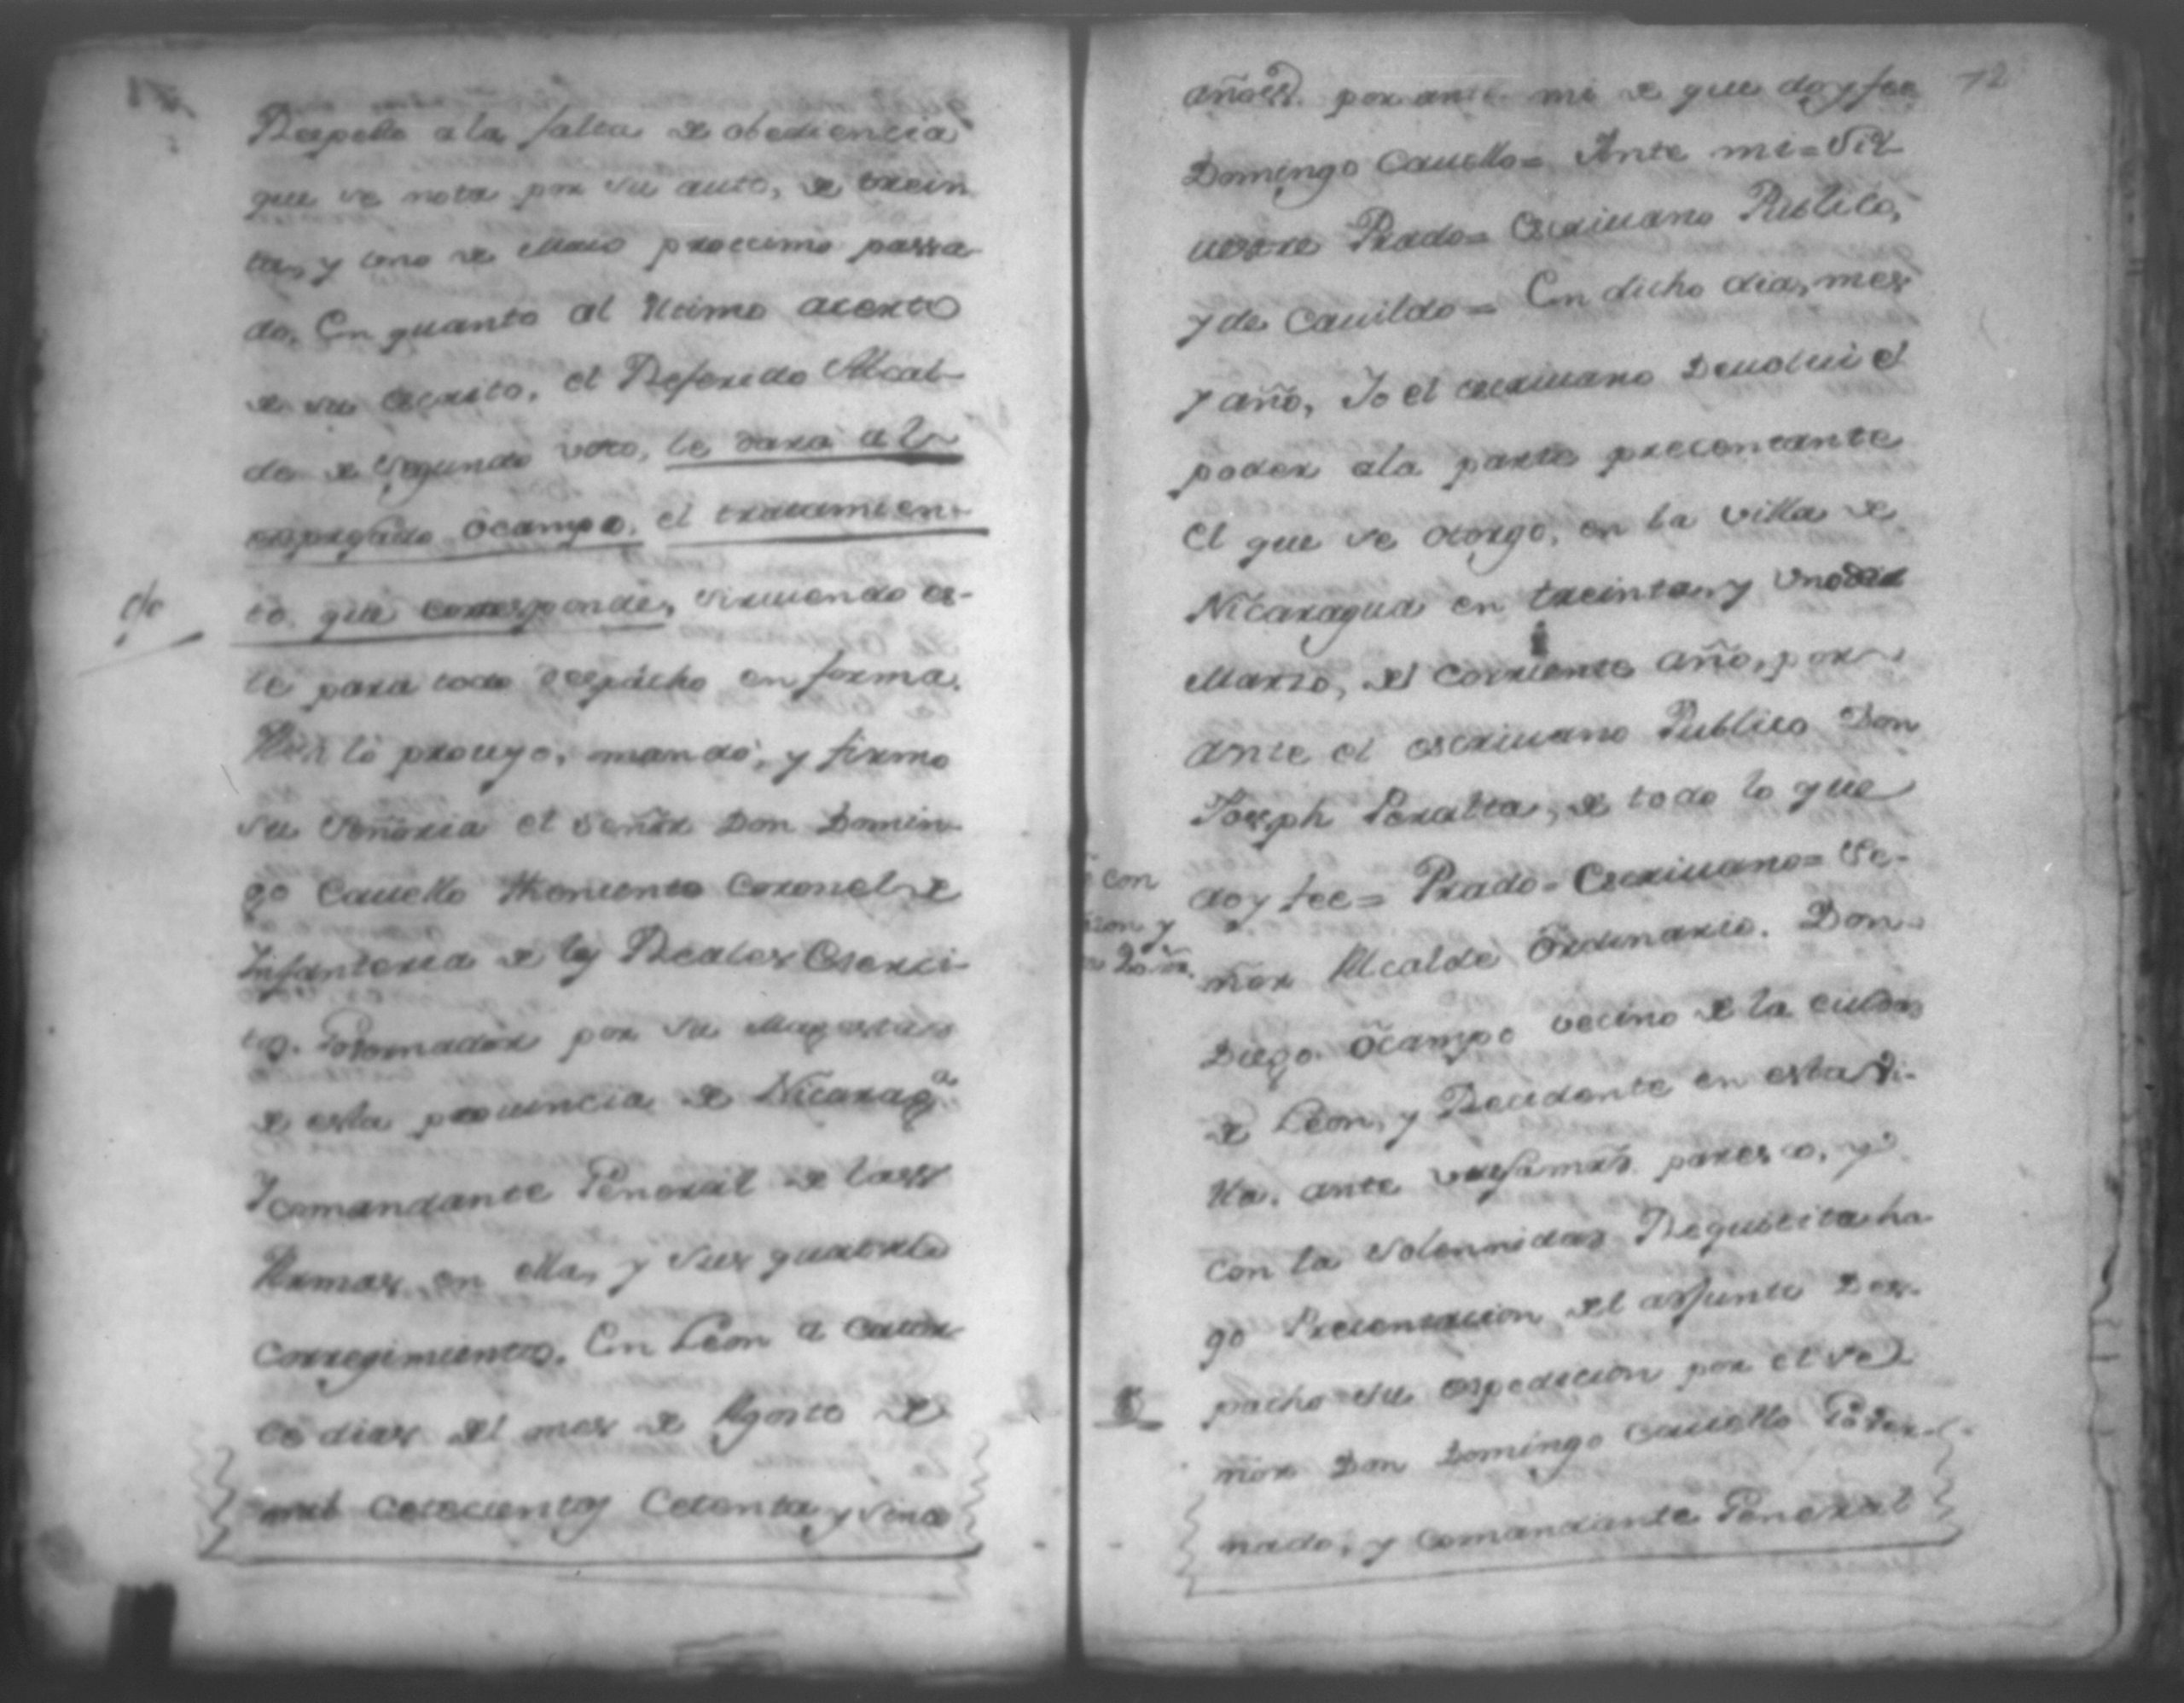 Respecto a la falta de obediencia
que se nota por su auto, de trein
ta, y uno de Maio proccimo passa
do. En quanto al Vltimo acerto
de su escrito, el Referido Alcal-
de de segundo voto, le dara al
expresado Ocampo. el tratamien-
to. que corresponde, sirviendo es-
te para todo despacho en forma.
Assi lo proveyo, mandó, y firmo
su Señoria el señor Don Domin-
go Cauello Theniente Coronel de
Infanteria de los Reales Exerci-
tos. Governador por su Magestad
de esta prouincia de Nicarag.a
Y comandante General de las
Armas en ella, y sus quatro
corregimientos. En Leon a cator
ce dias del mes de Agosto de
mil Cetecientos Cetenta, y cinco
12
años. por ante mi de que doy fee
Domingo Cauello = Ante mi = Sil
uestre Prado = Escriuano Publico,
y de Cauildo = En dicho dia, mes
y año, Yo el escriuano Deuolui el
poder a la parte precentante
El que se otorgo, en la villa de
Nicaragua en treinta y uno de
Marzo, del corriente año, por
ante el escriuano Publico Don
Joseph Peralta, de todo lo que
con
doy fee = Prado = Escriuano = Se-
ñor Alcalde Ordinario. Don
Diego Ocampo vecino de la ciudad
de Leon, y Recidente en esta Vi-
lla. ante paresco, y
con la solennidad Requicita ha
go Precentacion del adjunto Des-
pacho su expedicion por el Se
ñor Don Domingo Cauello Gover-
nado, y Comandante General